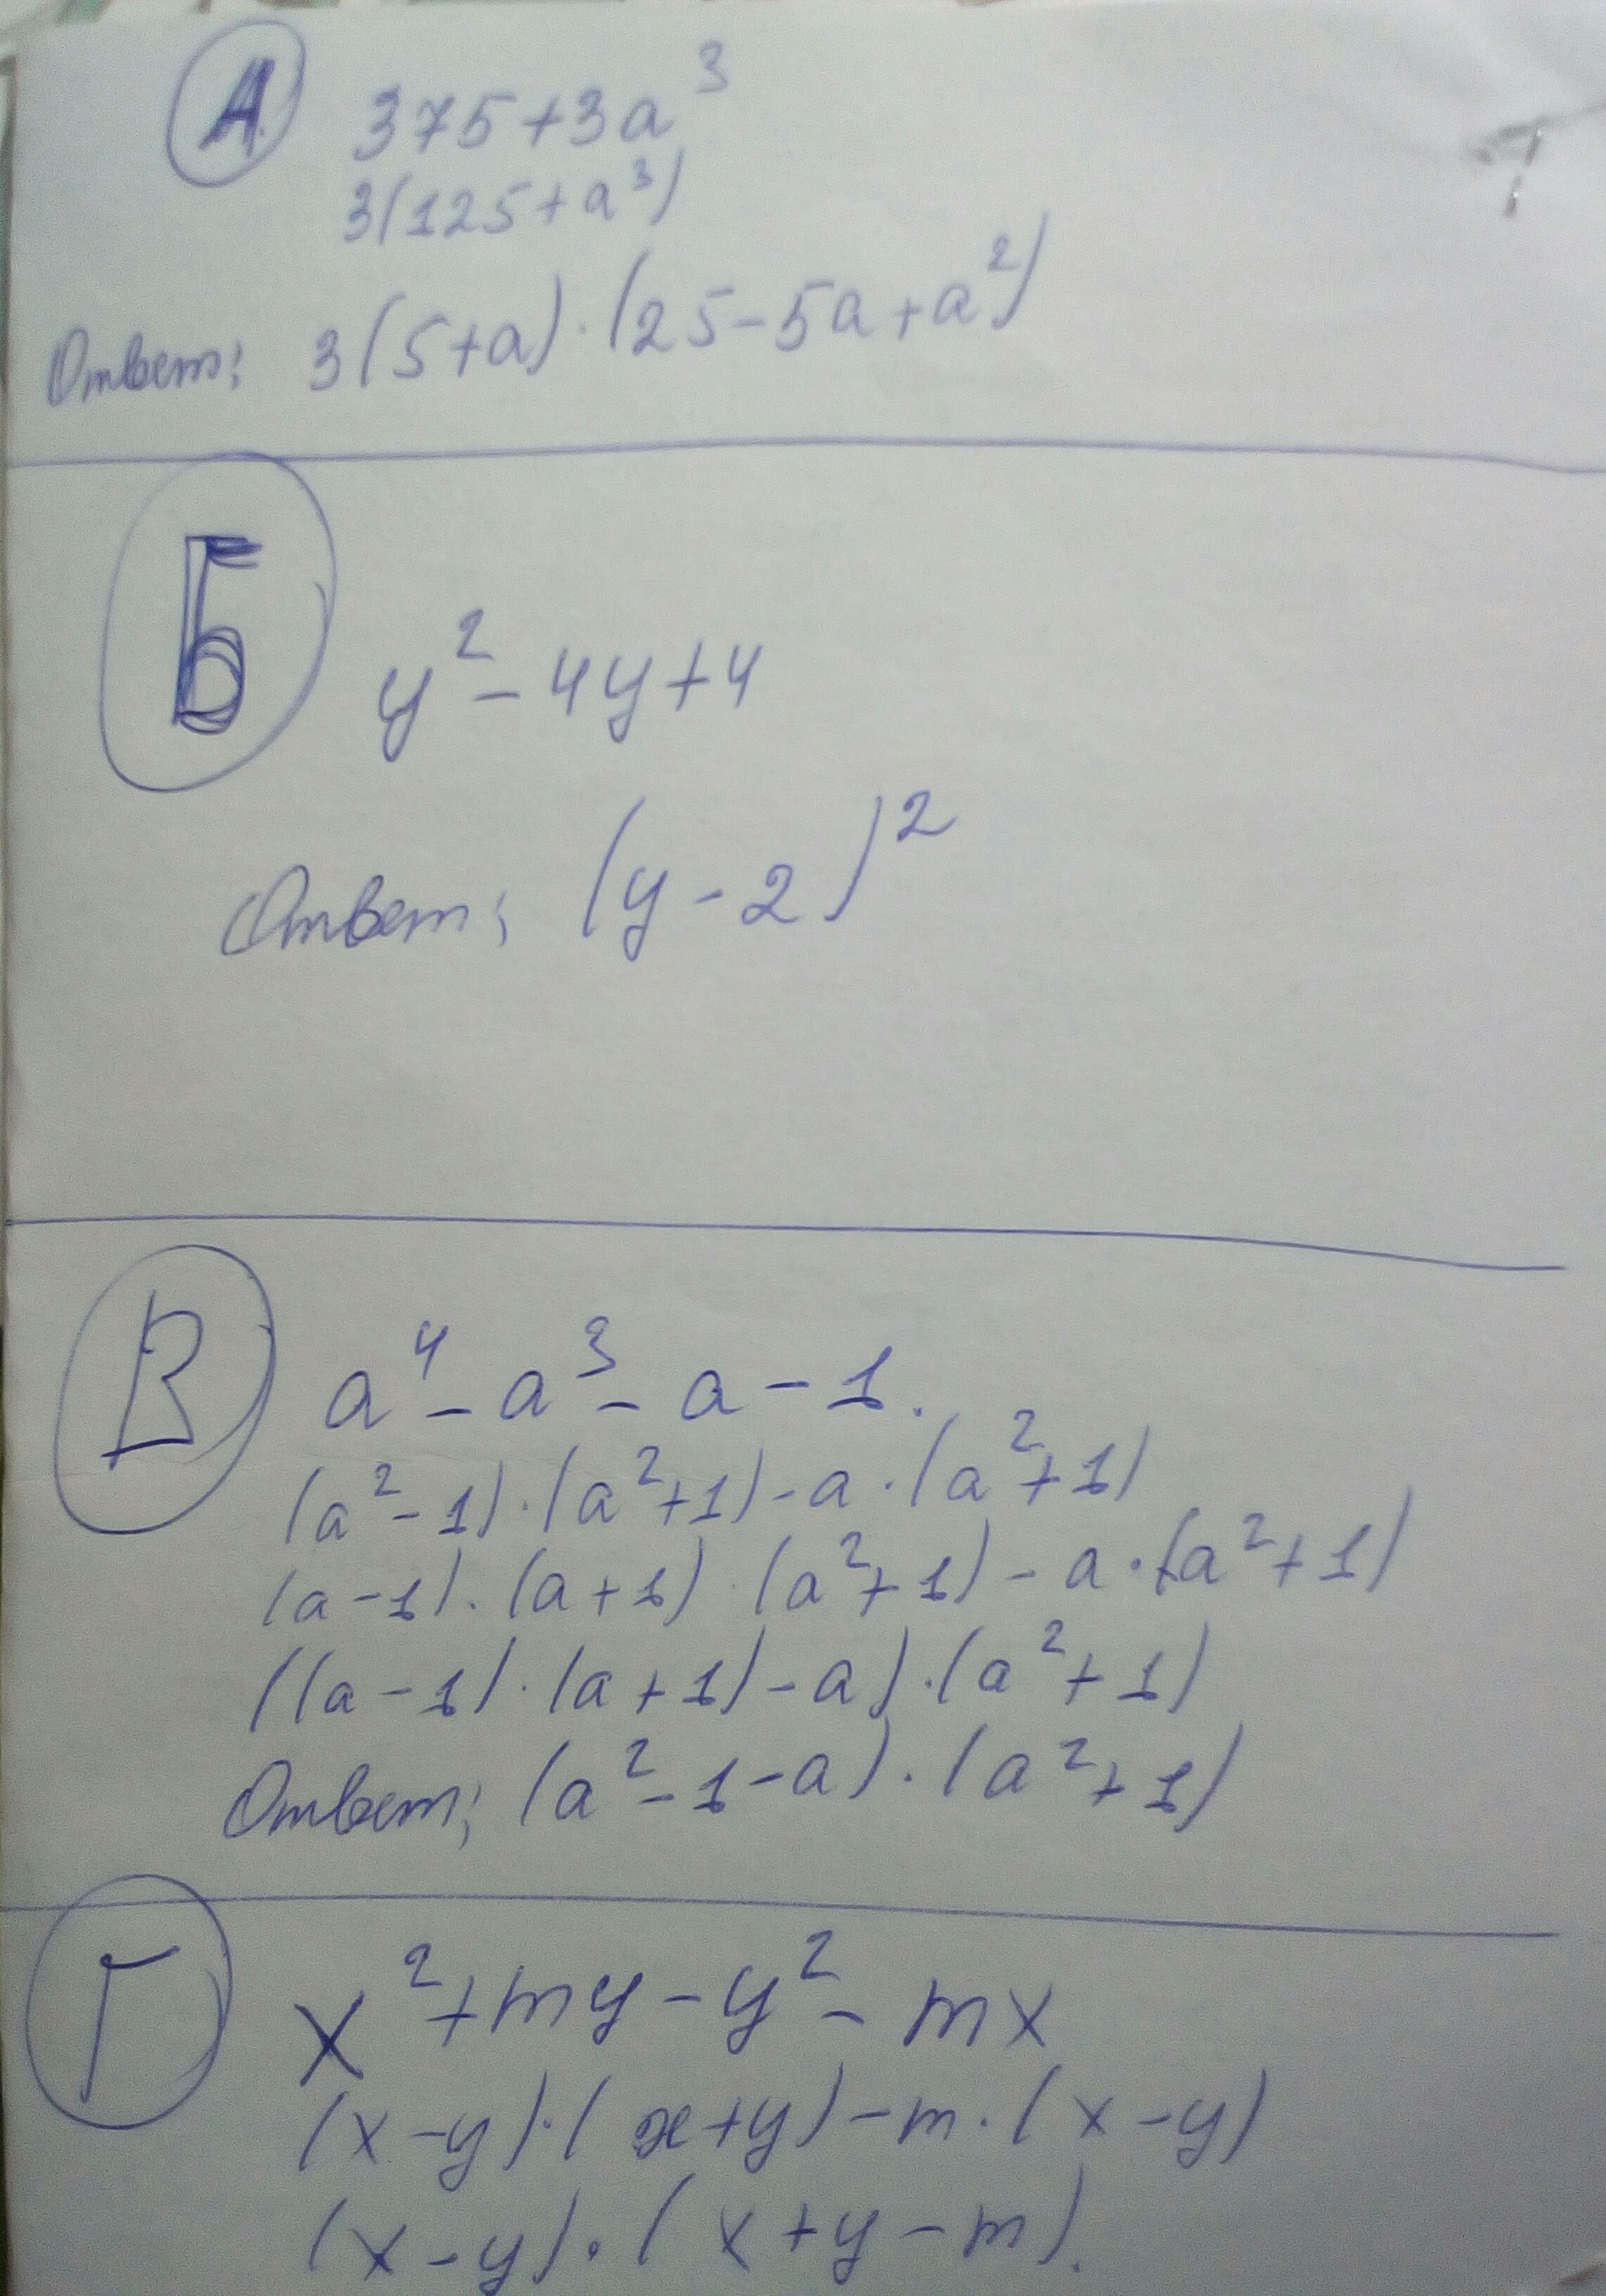 А 375+3a³
3(125+a³)
Ответ: 3(5+a)·(25-5a+a²)
Б
y²-4y+4
Ответ: (y-2)²
В a⁴-a³-a-1.
(a²-1)·(a²+1)-a·(a²+1)
(a-1)·(a+1)·(a²+1)-a·(a²+1)
((a-1)·(a+1)-a)·(a²+1)
Ответ: (a²-1-a)·(a²+1)
Г x²+my-y²-mx
(x-y)·(x+y)-m·(x-y)
(x-y)·(x+y-m).